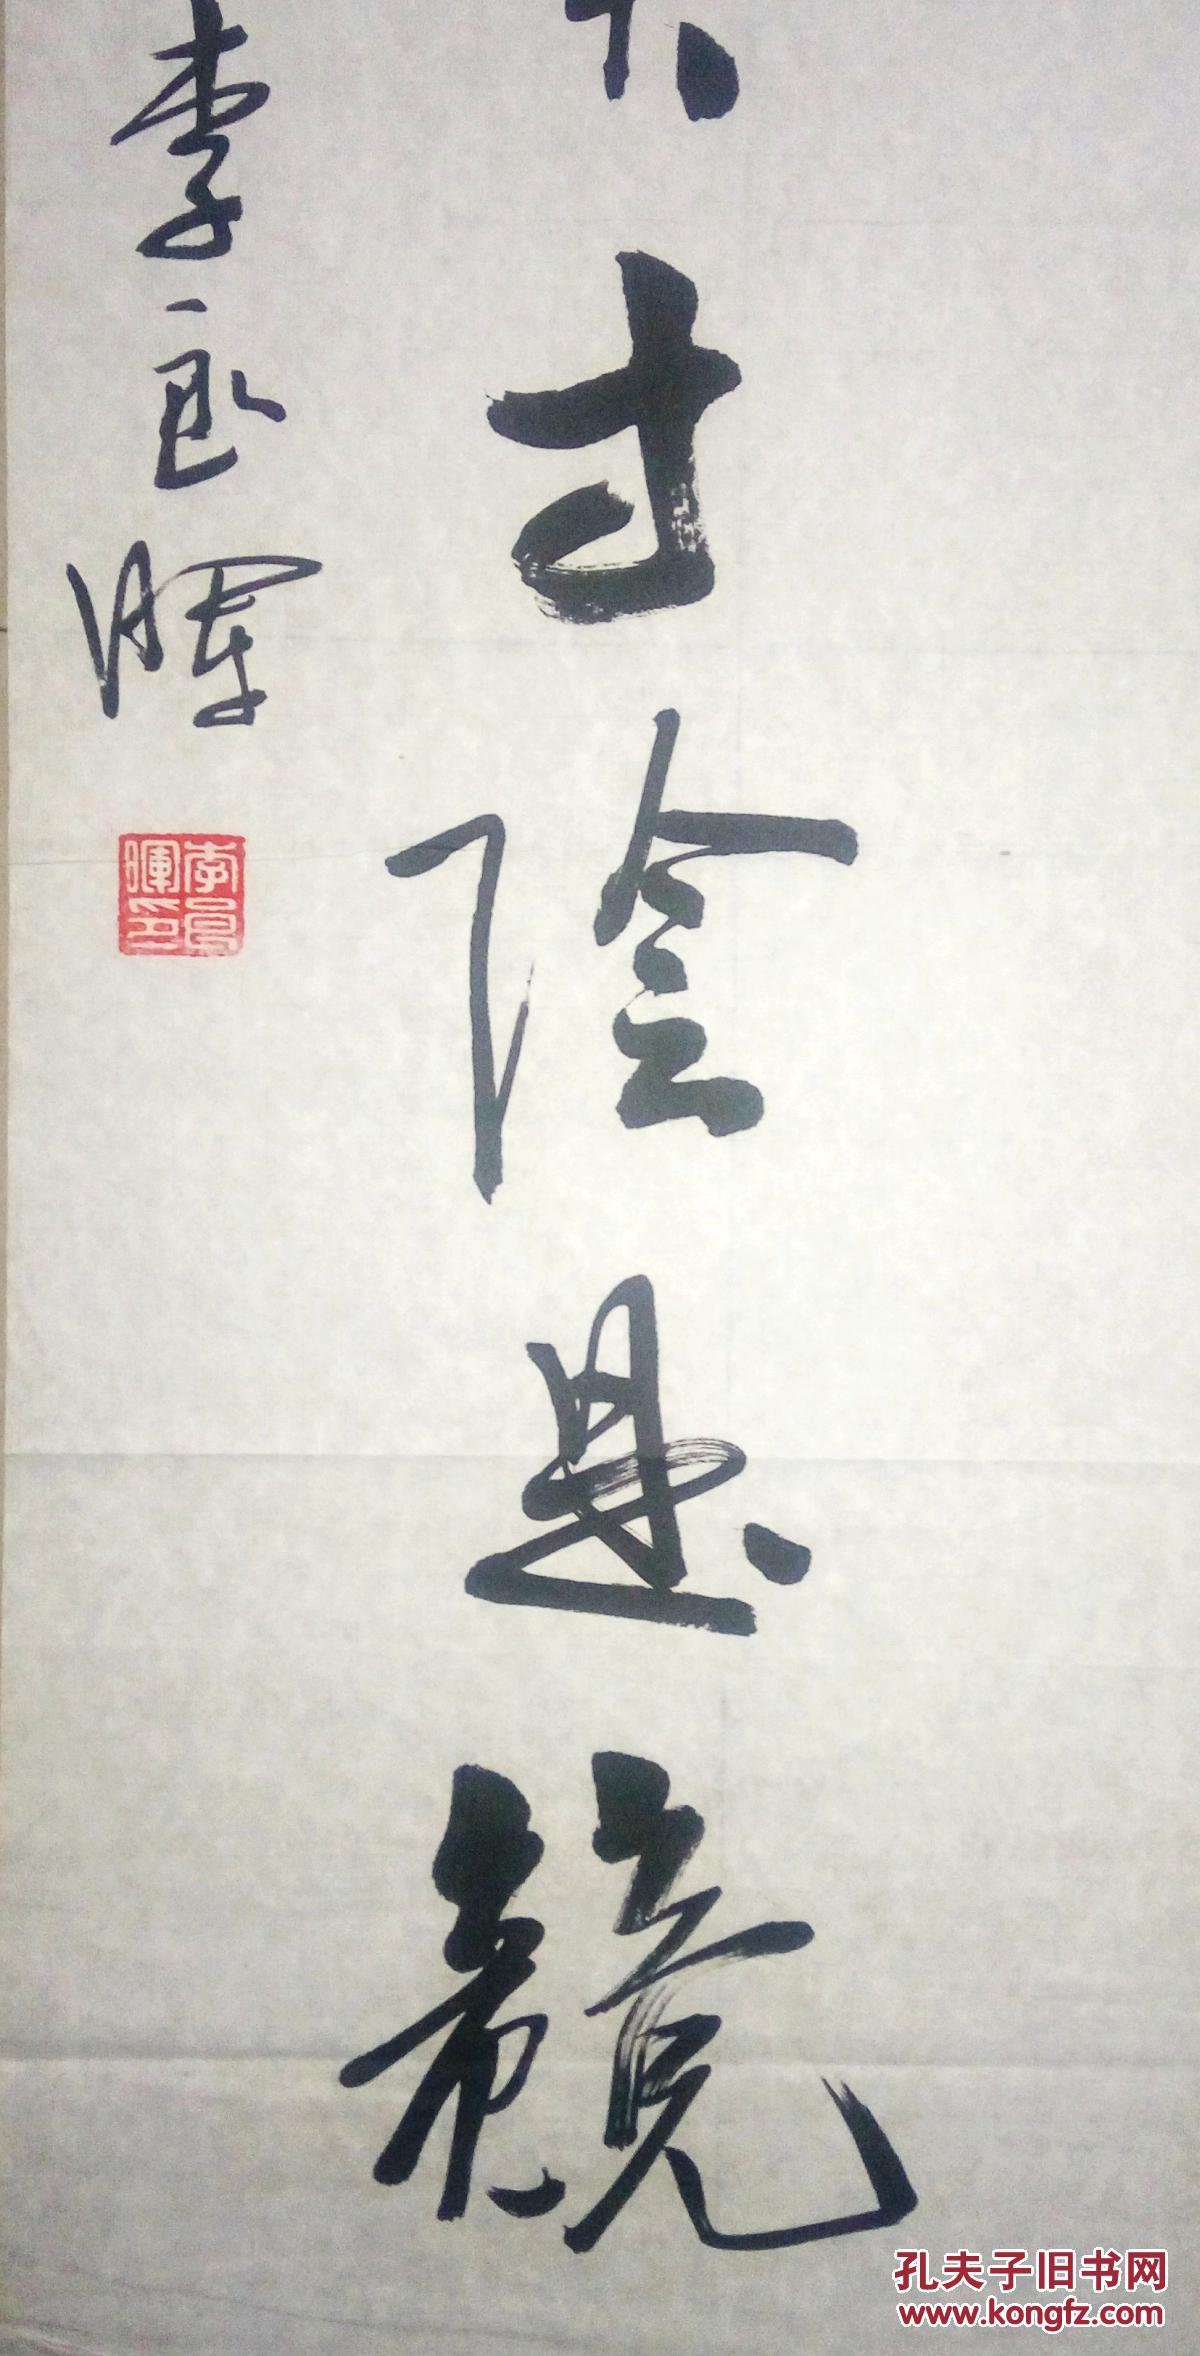 寸陰是競
李良暉
李良暉印
孔夫子旧书网
www.kongfz.com